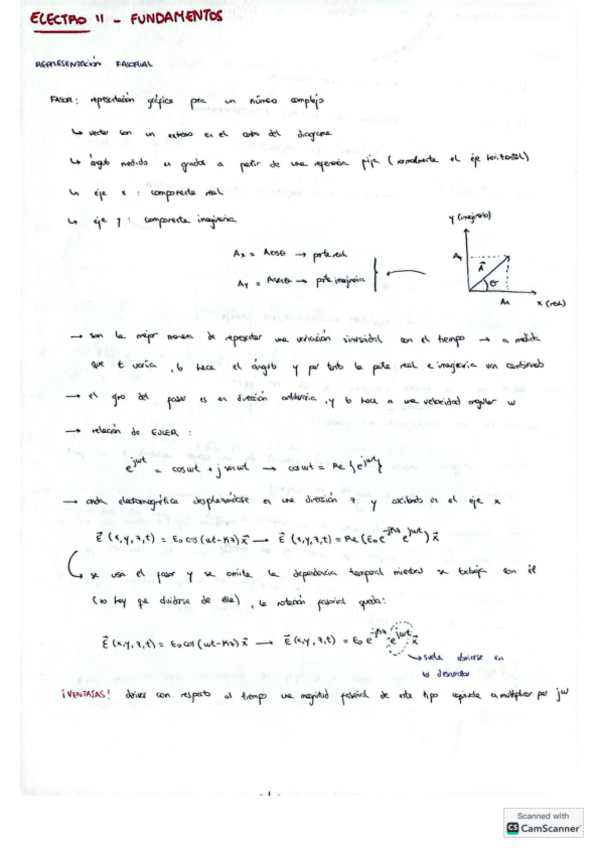 ELECTRO II - FUNDAMENTOS
REPRESENTACIÓN FASORIAL
FASOR: representación gráfica para un número complejo
↳ vector con un extremo en el centro del diagrama
↳ ángulo medido en grados a partir de una referencia fija (normalmente el eje horizontal)
↳ eje x : componente real
↳ eje y : componente imaginaria
y (imaginario)
Ax = Acosθ → parte real
Ay = Asenθ → parte imaginaria
Ay
A⃗
θ
Ax
x (real)
→ son la mejor manera de representar una variación sinusoidal con el tiempo → a medida
que t varía, lo hace el ángulo y por tanto la parte real e imaginaria van cambiando
→ el giro del fasor es en dirección antihoraria, y lo hace a una velocidad angular ω
→ relación de EULER :
e^jωt = cosωt + j senωt → cosωt = Re {e^jωt}
→ onda electromagnética desplazándose en una dirección z y oscilando en el eje x
E⃗ (x,y,z,t) = E₀ cos (ωt-kz) x̂ → E⃗ (x,y,z,t) = Re (E₀ e^-jkz e^jωt) x̂
se usa el fasor y se omite la dependencia temporal mientras se trabaja con él
(no hay que olvidarse de ella), la notación fasorial queda:
E⃗ (x,y,z,t) = E₀ cos (ωt-kz) x̂ → E⃗ (x,y,z,t) = E₀ e^-jkz e^jωt x̂
↳ suele obviarse en
¡VENTAJAS! derivar con respecto al tiempo una magnitud fasorial de este tipo equivale a multiplicar por jω
- 1 -
Scanned with
CS CamScanner